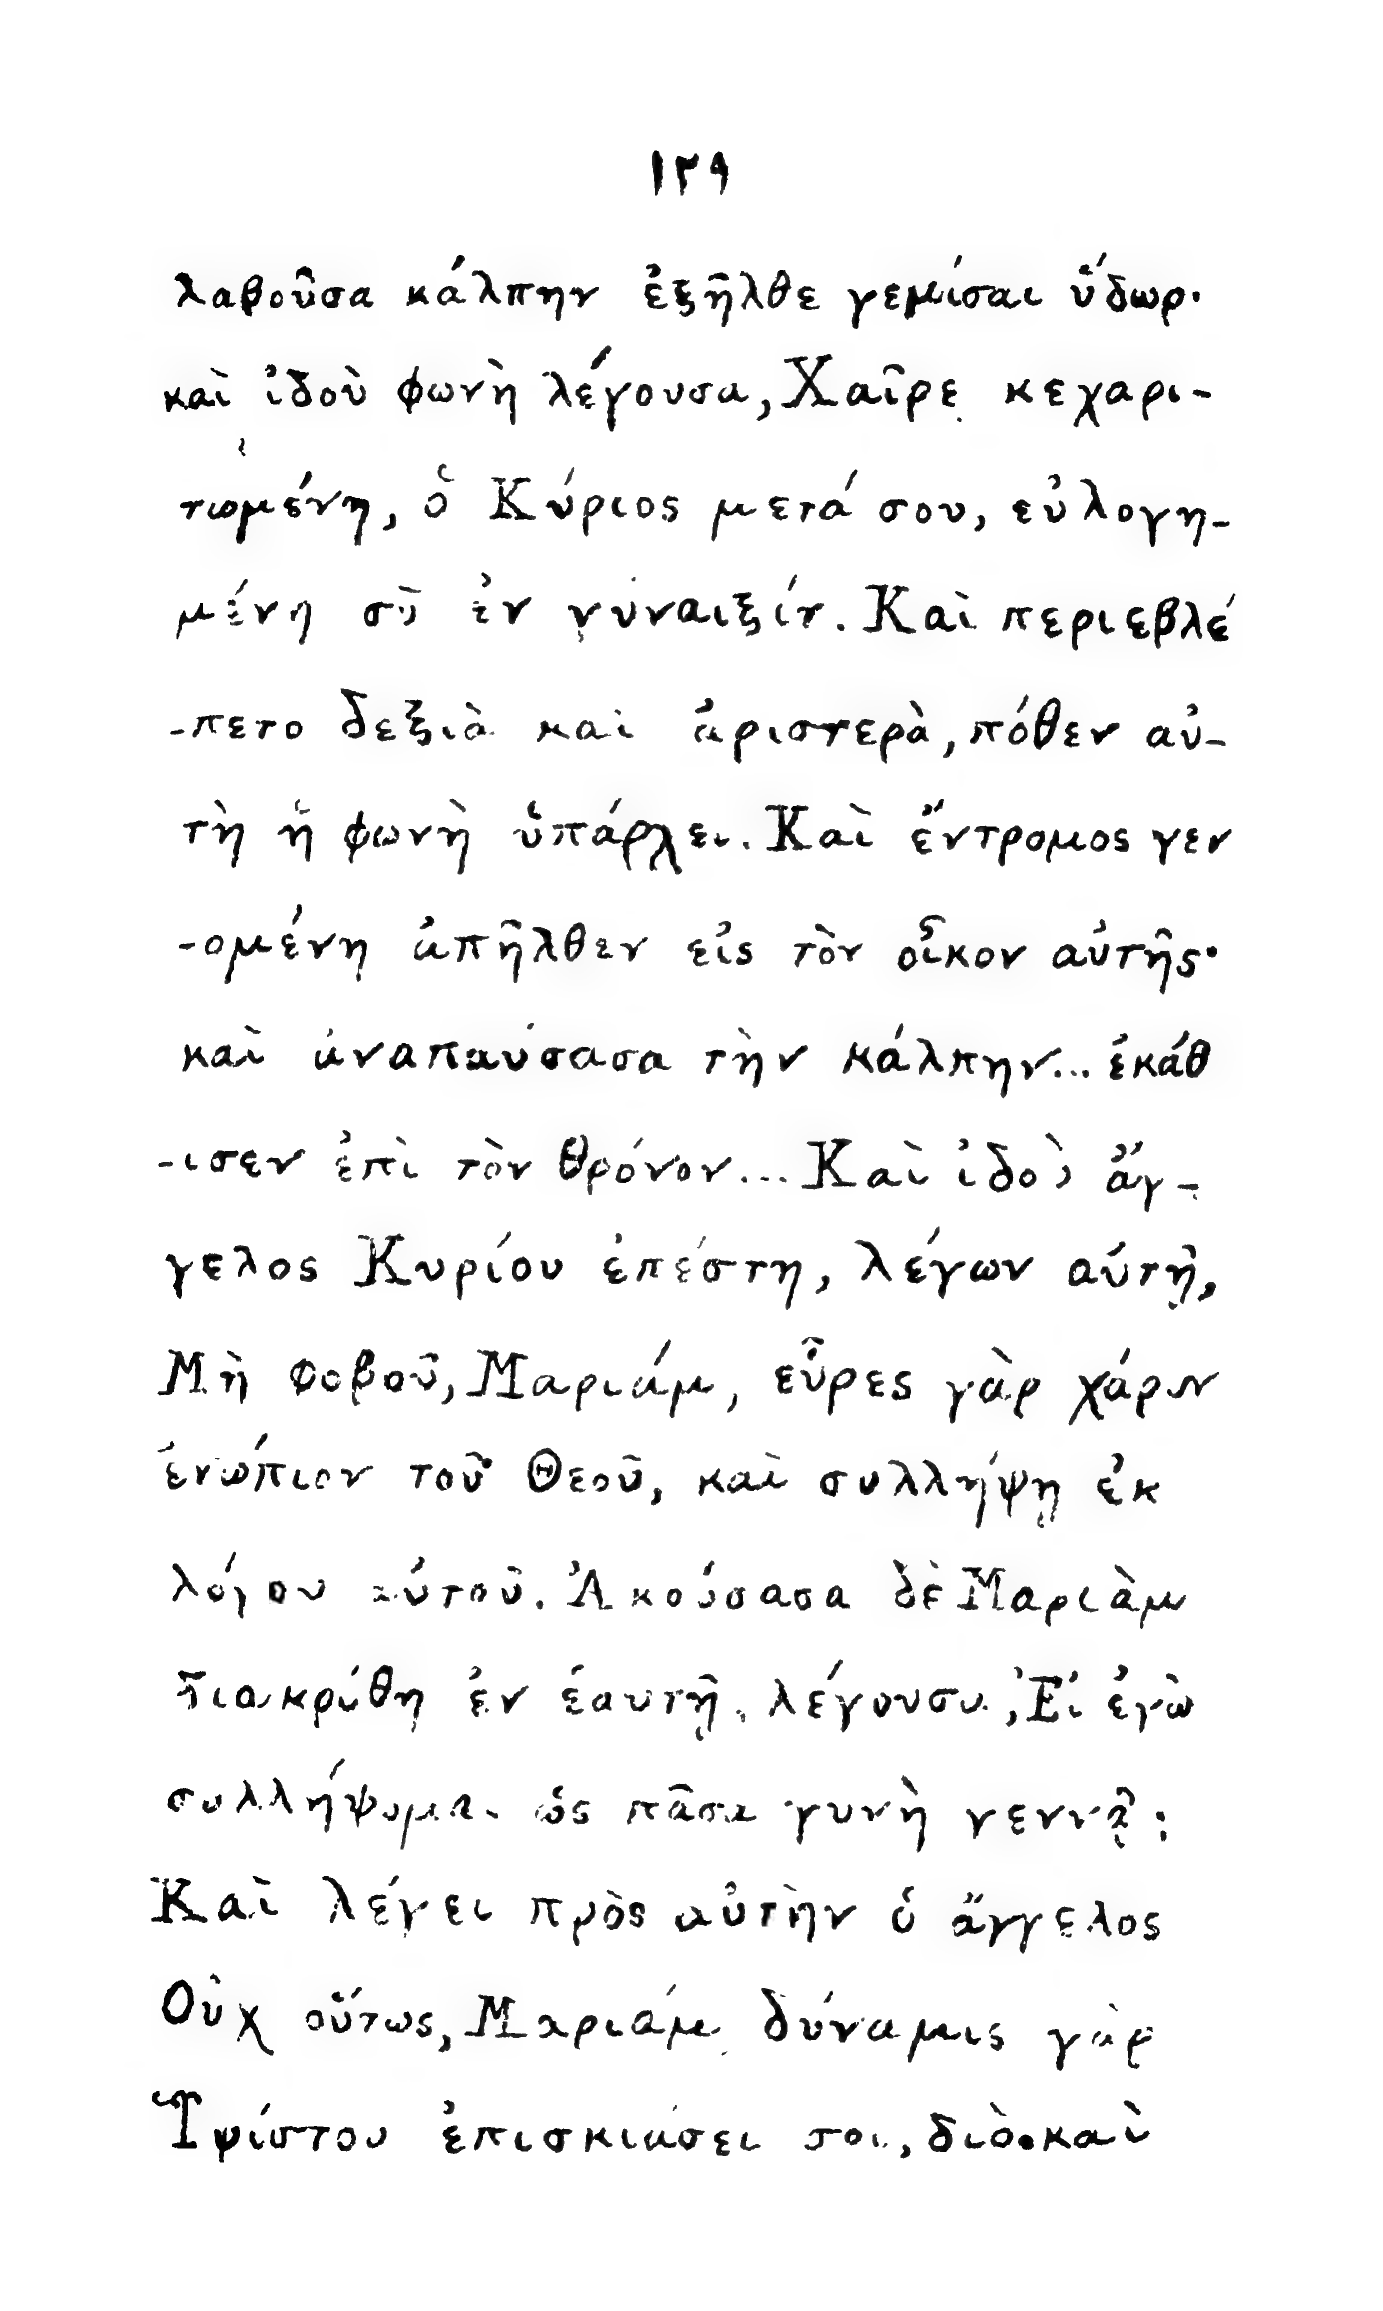 ١٢٩
λαβοῦσα κάλπην ἐξῆλθε γεμίσαι ὕδωρ·
καὶ ἰδοὺ φωνὴ λέγουσα, Χαῖρε κεχαρι-
τωμένη, ὁ Κύριος μετά σου, εὐλογη-
μένη σὺ ἐν γυναιξίν. Καὶ περιεβλέ
-πετο δεξιὰ καὶ ἀριστερὰ, πόθεν αὐ-
τὴ ἡ φωνὴ ὑπάρχει. Καὶ ἔντρομος γεν
-ομένη ἀπῆλθεν εἰς τὸν οἶκον αὐτῆς·
καὶ ἀναπαύσασα τὴν κάλπην... ἐκάθ
-ισεν ἐπὶ τὸν θρόνον... Καὶ ἰδοὺ ἄγ-
γελος Κυρίου ἐπέστη, λέγων αὐτῇ,
Μὴ φοβοῦ, Μαριάμ, εὗρες γὰρ χάριν
ἐνώπιον τοῦ Θεοῦ, καὶ συλλήψῃ ἐκ
λόγου αὐτοῦ. Ἀκούσασα δὲ Μαριὰμ
διακρίθη ἐν ἑαυτῇ, λέγουσα, Εἰ ἐγὼ
συλλήψομαι ὡς πᾶσα γυνὴ γεννᾷ;
Καὶ λέγει πρὸς αὐτὴν ὁ ἄγγελος
Οὐχ οὕτως, Μαριάμ, δύναμις γὰρ
Ὑψίστου ἐπισκιάσει σοι, διὸ καὶ